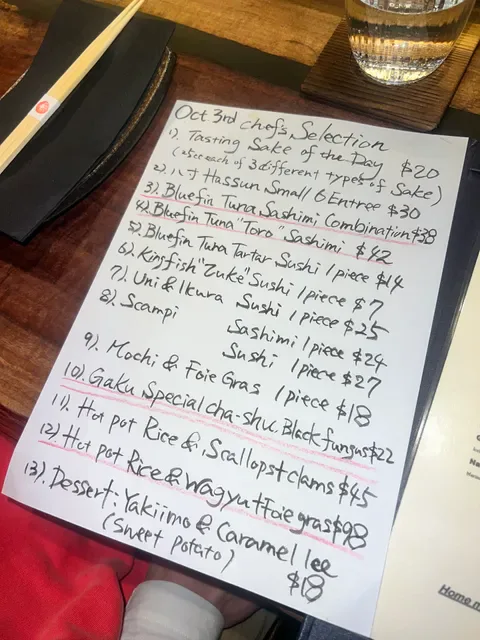 Oct 3rd chefs, Selection
1). Tasting Sake of the Day $20
(after each of 3 different types of Sake)
2). 八寸 Hassun Small 6 Entree $30
3). Bluefin Tuna Sashimi Combination $38
4). Bluefin Tuna "Toro" Sashimi $42
5). Bluefin Tuna Tartar Sushi 1 piece $14
6). Kingfish "Zuke" Sushi 1 piece $7
7). Uni & Ikura Sushi 1 piece $25
8). Scampi Sashimi 1 piece $24
Sushi 1 piece $27
9). Mochi & Foie Gras 1 piece $18
10). Gaku Special cha-shu. Black fungus $22
11). Hot pot Rice & Scallops + clams $45
12). Hot pot Rice & Wagyu + Foie gras $98
13). Dessert: Yakiimo & Caramel Ice
(Sweet Potato) $18
Home m